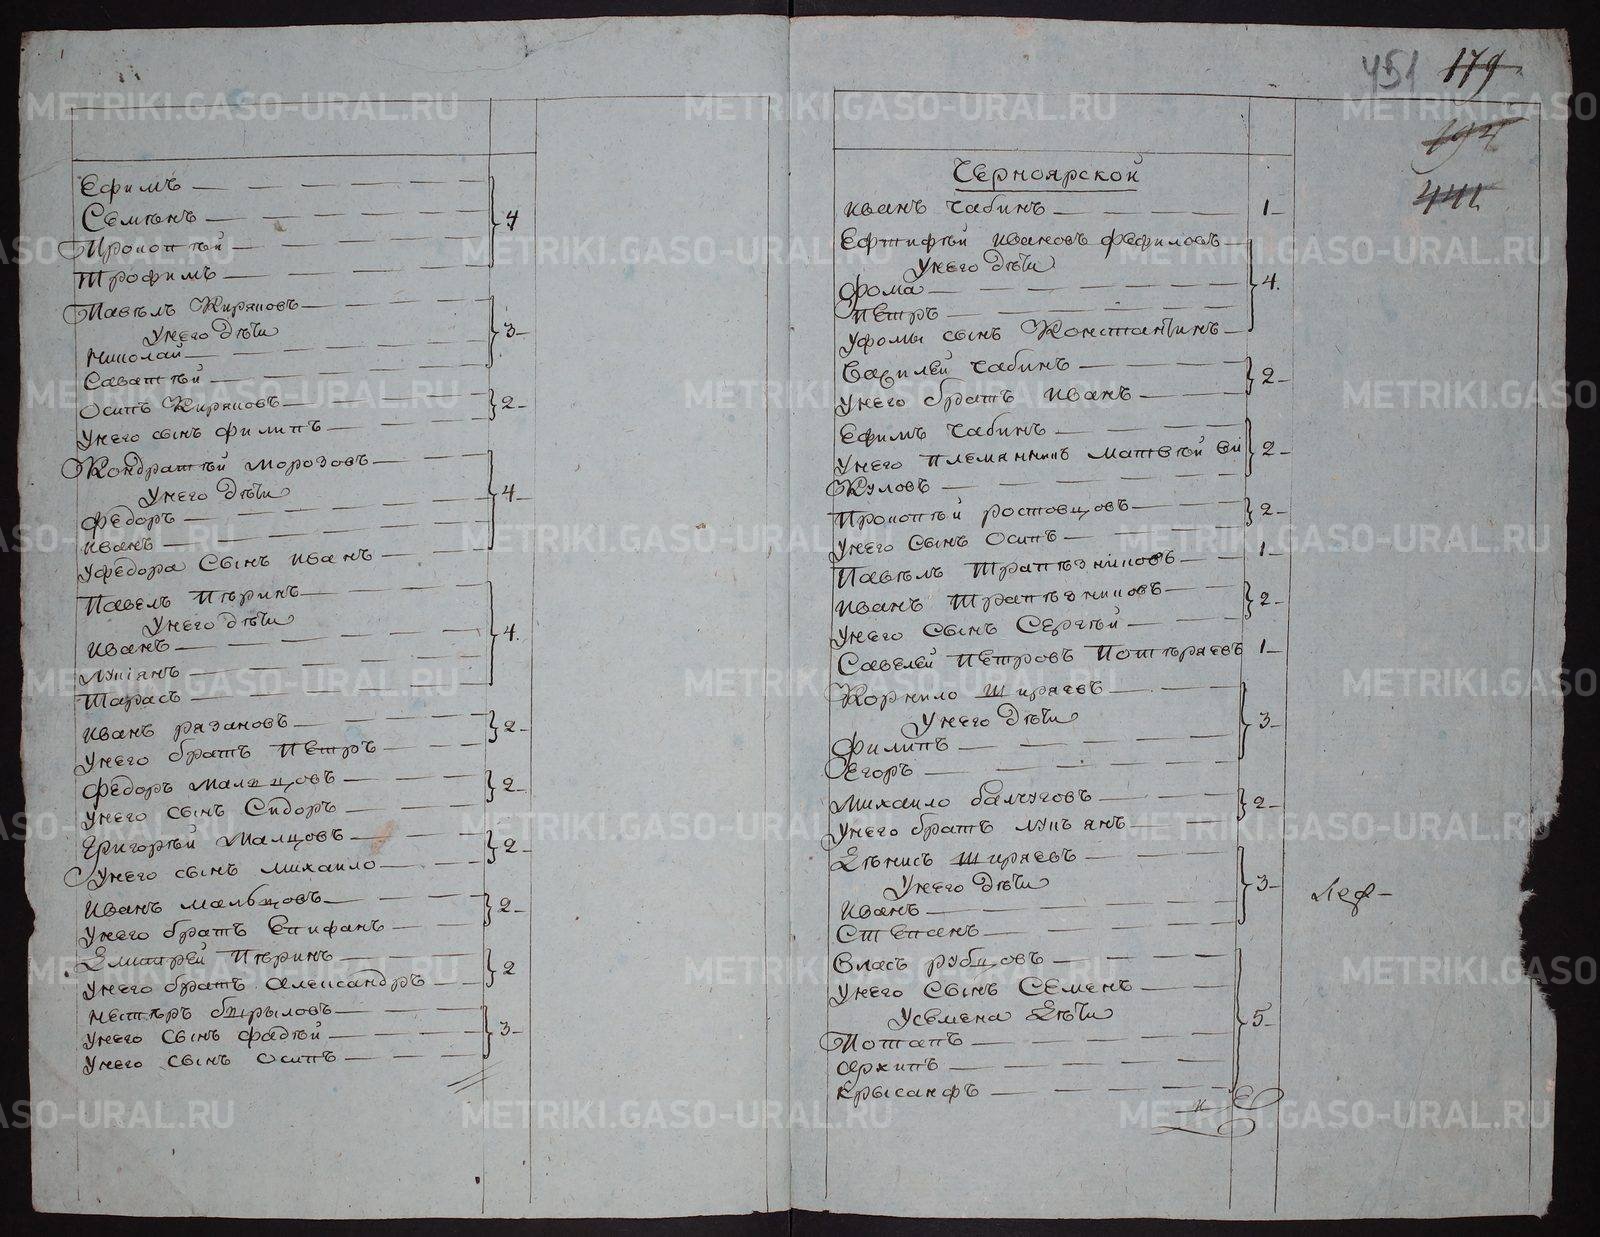 Ефимъ
Семѣнъ
Прокопѣй
Трофимъ
4
Павѣлъ Киряковъ
Унего дѣти
Николай
3
Саватѣй
Осипъ Киряковъ
2
Унего сынъ Филипъ
Кондратѣй Морозовъ
Унего дѣти
4
Федоръ
Иванъ
Уфедора Сынъ Иванъ
Павелъ Пѣринъ
Унего дѣти
Иванъ
4.
Лукіянъ
Тарасъ
Иванъ Рязановъ
2
Унего братъ Петръ
Федоръ Малцовъ
2
Унего сынъ Сидоръ
Григорѣй Малцовъ
2
Унего сынъ Михаило
Иванъ Мальцовъ
2
Унего братъ Епифанъ
Дмитрей Пѣринъ
2
Унего братъ Александръ
Нестѣръ
Унего Сынъ Фадѣй
3
Унего сынъ Осипъ
451 179
194
441
Черноярской
Иванъ Чабинъ 1
Ефтифѣй Ивановъ Фефиловъ
Унего дѣти
Фома
4.
Петръ
Уфомы сынъ Константинъ
Василей Чабинъ
2
Унего братъ Иванъ
Ефимъ Чабинъ
Унего племянникъ Матвѣй
2
Прокопѣй Ростовцовъ
2
Унего Сынъ Осипъ
Павѣлъ Трапѣзниковъ 1
Иванъ Трапѣзниковъ
2
Унего Сынъ Сергѣй
Савелей Петровъ Потѣряевъ 1
Корнило Ширяевъ
Унего дѣти
3
Филипъ
Егоръ
Михаило Балчуговъ
2
Унего братъ Лукъянъ
Дѣнисъ Ширяевъ
Унего Дѣти
3
Иванъ
Степанъ
Власъ Рубцовъ
Унего Сынъ Семенъ
Усемена Дѣти
5
Потапъ
Архипъ
Крысанфъ
METRIKI.GASO-URAL.RU